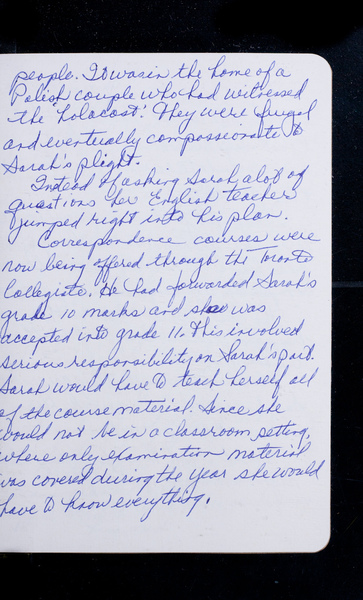 people. It was in the home of a
Polish couple who had witnessed
the 'holacost'. They were frugal
and eventually compasseonate to
Sarah's plight.
Intead of asking Sarah a lot of
questions her English teacher
jumped right into his plan.
Correspondence courses were
now being offered through the Toronto
Collegiate. He had forwarded Sarah's
grade 10 marks and she was
accepted into grade 11. This involved
serious responsibility on Sarah's part.
Sarah would have to teach herself all
of the course material. Since she
would not be in a classroom setting,
where only examination material
was covered during the year she would
have to know everything.